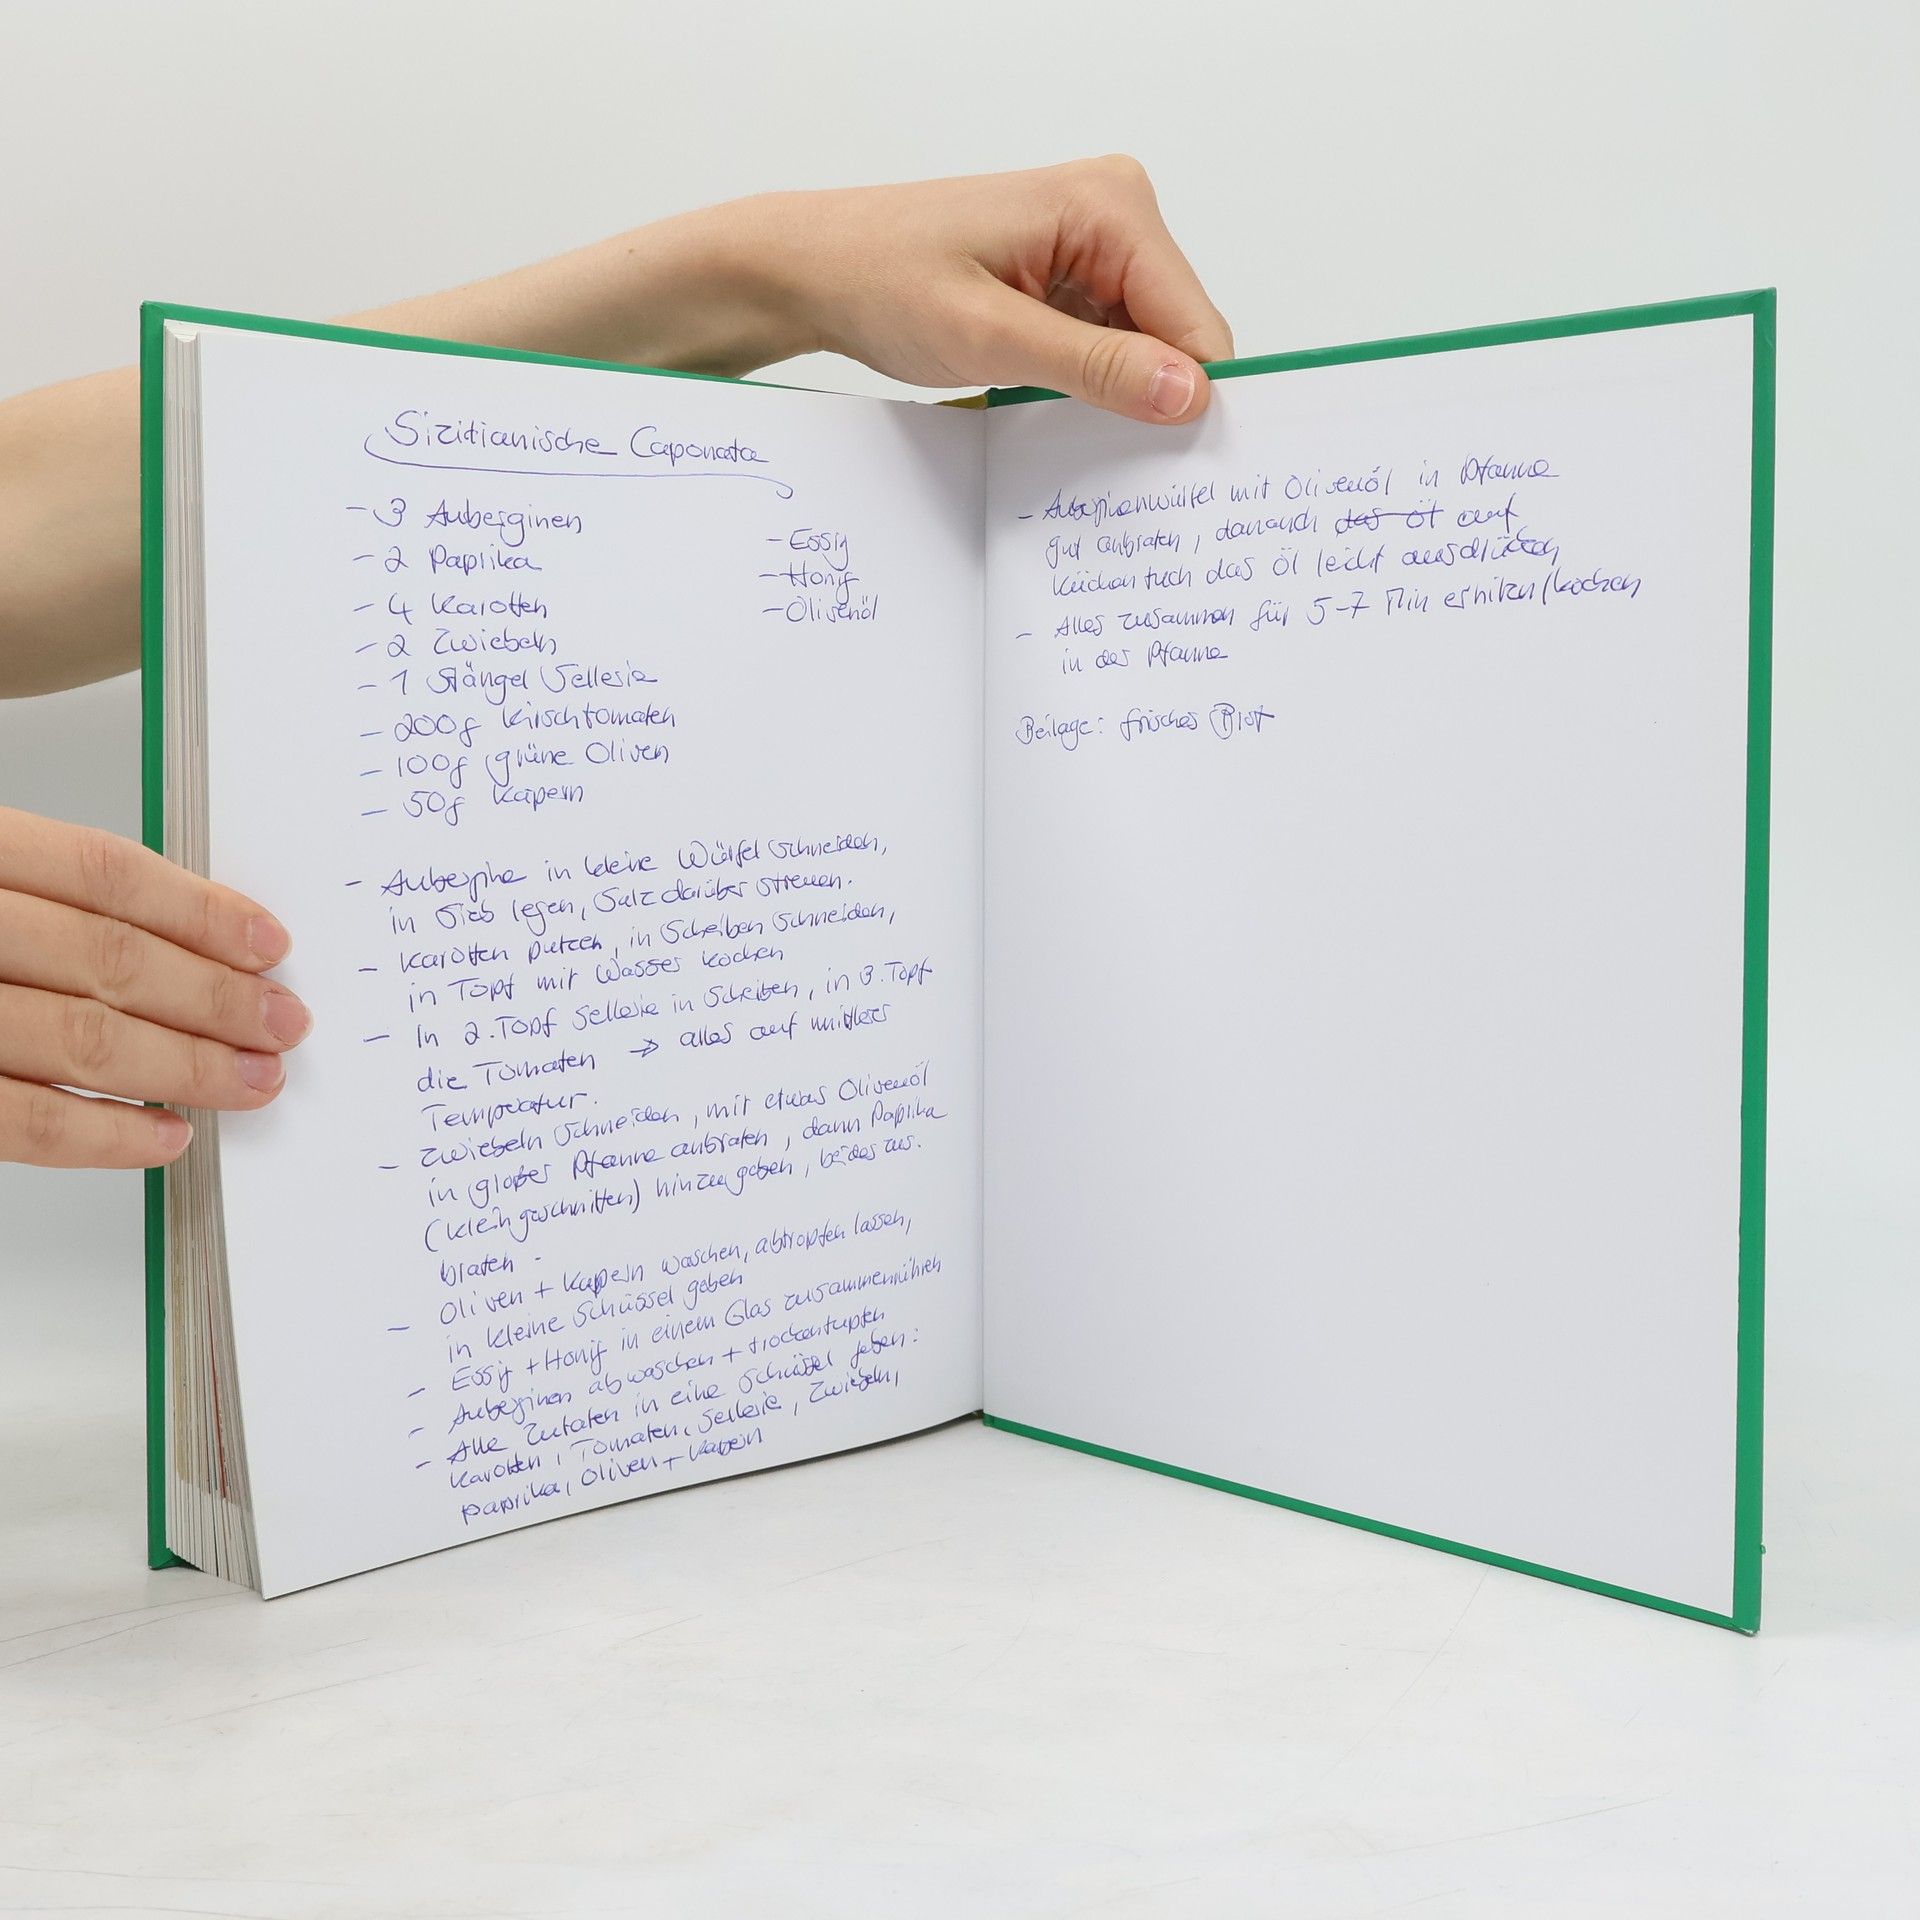 Sizilianische Caponata
- 3 Auberginen
- 2 Paprika
- 4 Karotten
- 2 Zwiebeln
- 1 Stängel Sellerie
- 200g Kirschtomaten
- 100g grüne Oliven
- 50g Kapern
- Essig
- Honig
- Olivenöl
- Aubergine in kleine Würfel schneiden,
in Sieb legen, Salz darüber streuen.
- Karotten putzen, in Scheiben schneiden,
in Topf mit Wasser kochen
- In 2. Topf Sellerie in Scheiben, in 3. Topf
die Tomaten → alles auf mittlerer
Temperatur.
- Zwiebeln schneiden, mit etwas Olivenöl
in großer Pfanne anbraten, dann Paprika
(klein geschnitten) hinzugeben, beides an.
braten.
- Oliven + Kapern waschen, abtropfen lassen,
in kleine Schüssel geben
- Essig + Honig in einem Glas zusammenrühren
- Auberginen abwaschen + trockentupfen
- Alle Zutaten in eine Schüssel geben:
Karotten, Tomaten, Sellerie, Zwiebeln,
Paprika, Oliven + Kapern
- Auberginenwürfel mit Olivenöl in Pfanne
gut anbraten, danach das Öl auf
Küchentuch das Öl leicht ausdrücken
- Alles zusammen für 5-7 Min erhitzen/kochen
in der Pfanne
Beilage: frisches Brot